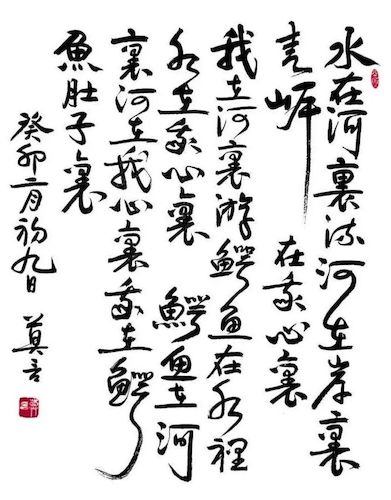 水在河裏流河在岸裏
走岸 在我心裏
我在河裏游鰐鱼在水裡
水在我心裏 鰐鱼在河
裏河在我心裏我在鰐
魚肚子裏
癸卯二月初九日 莫言